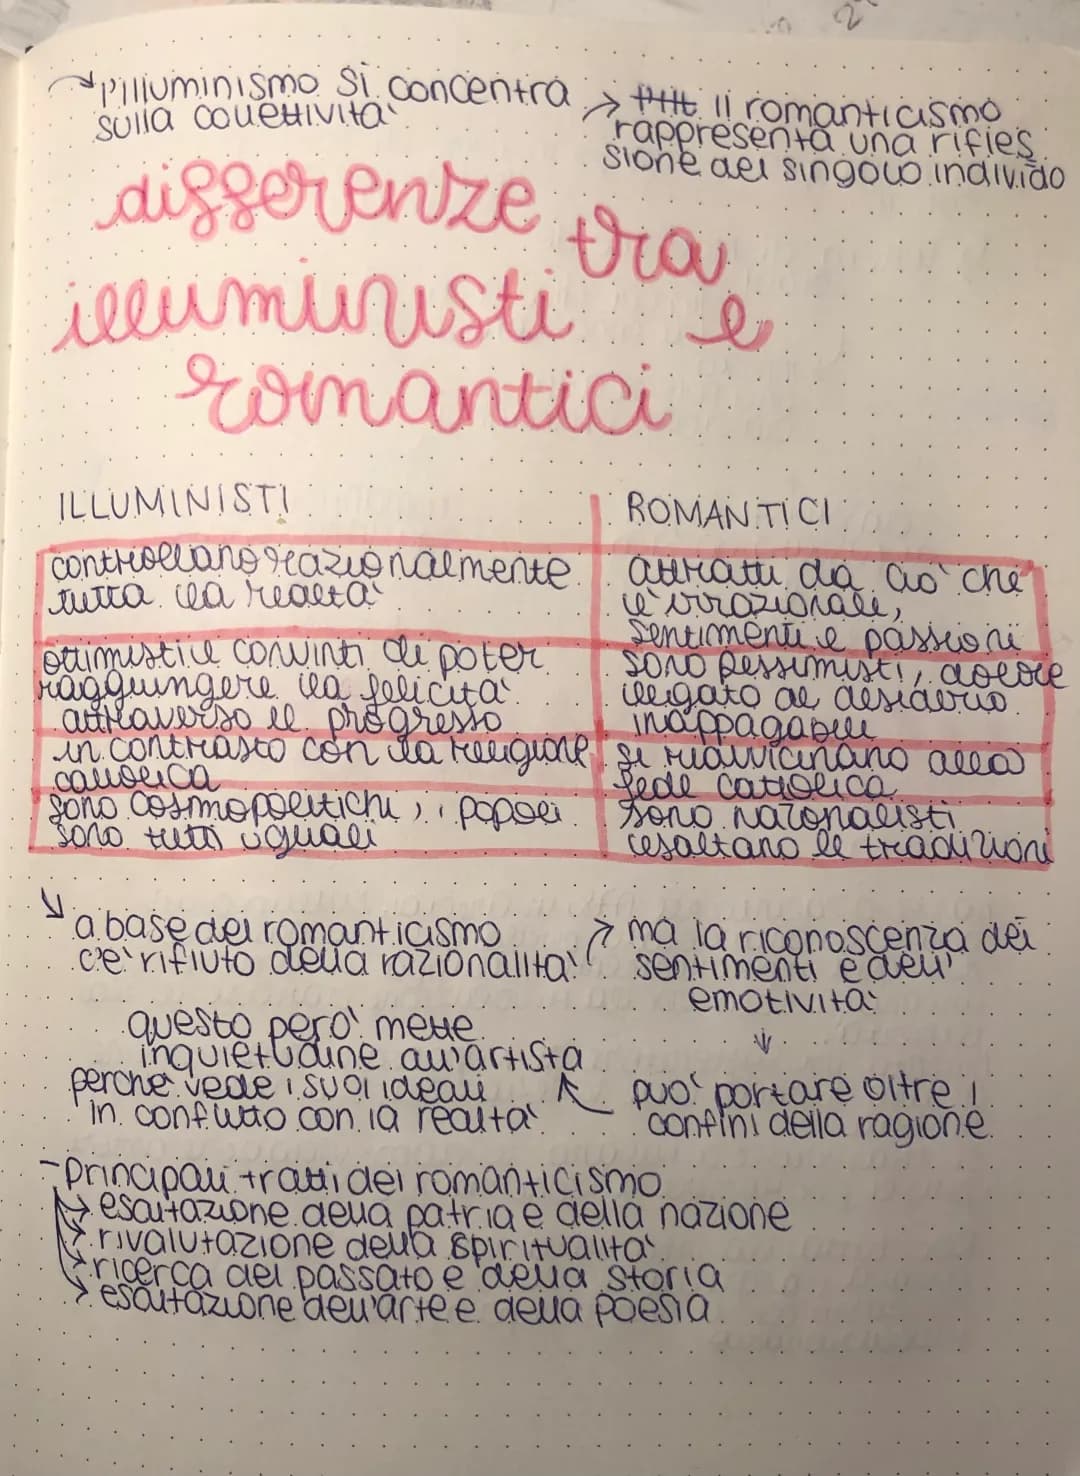 l'illuminismo si concentra
sulla collettività
il romanticismo
rappresenta una rifles
sione del singolo individo
differenze tra
illuministi e
romantici
ILLUMINISTI
ROMANTICI
controllano razionalmente
tutta la realtà
attratti da ciò che
è irrazionale,
sentimenti e passioni
ottimisti e convinti di poter
raggiungere la felicità
attraverso il progresso
sono pessimisti, dolore
legato al desiderio
inappagabile
in contrasto con la religione
cattolica
si riavvicinano alla
fede cattolica
sono cosmopolitichi, i popoli
sono tutti uguali
sono nazionalisti
esaltano le tradizioni
a base del romanticismo
c'è rifiuto della razionalità
ma la riconoscenza dei
sentimenti e dell'
emotività
può portare oltre i
confini della ragione
questo però mette
inquietudine all'artista
perché vede i suoi ideali
in conflitto con la realtà
-principali tratti del romanticismo
esaltazione della patria e della nazione
rivalutazione della spiritualità
ricerca del passato e della storia
esaltazione dell'arte e della poesia